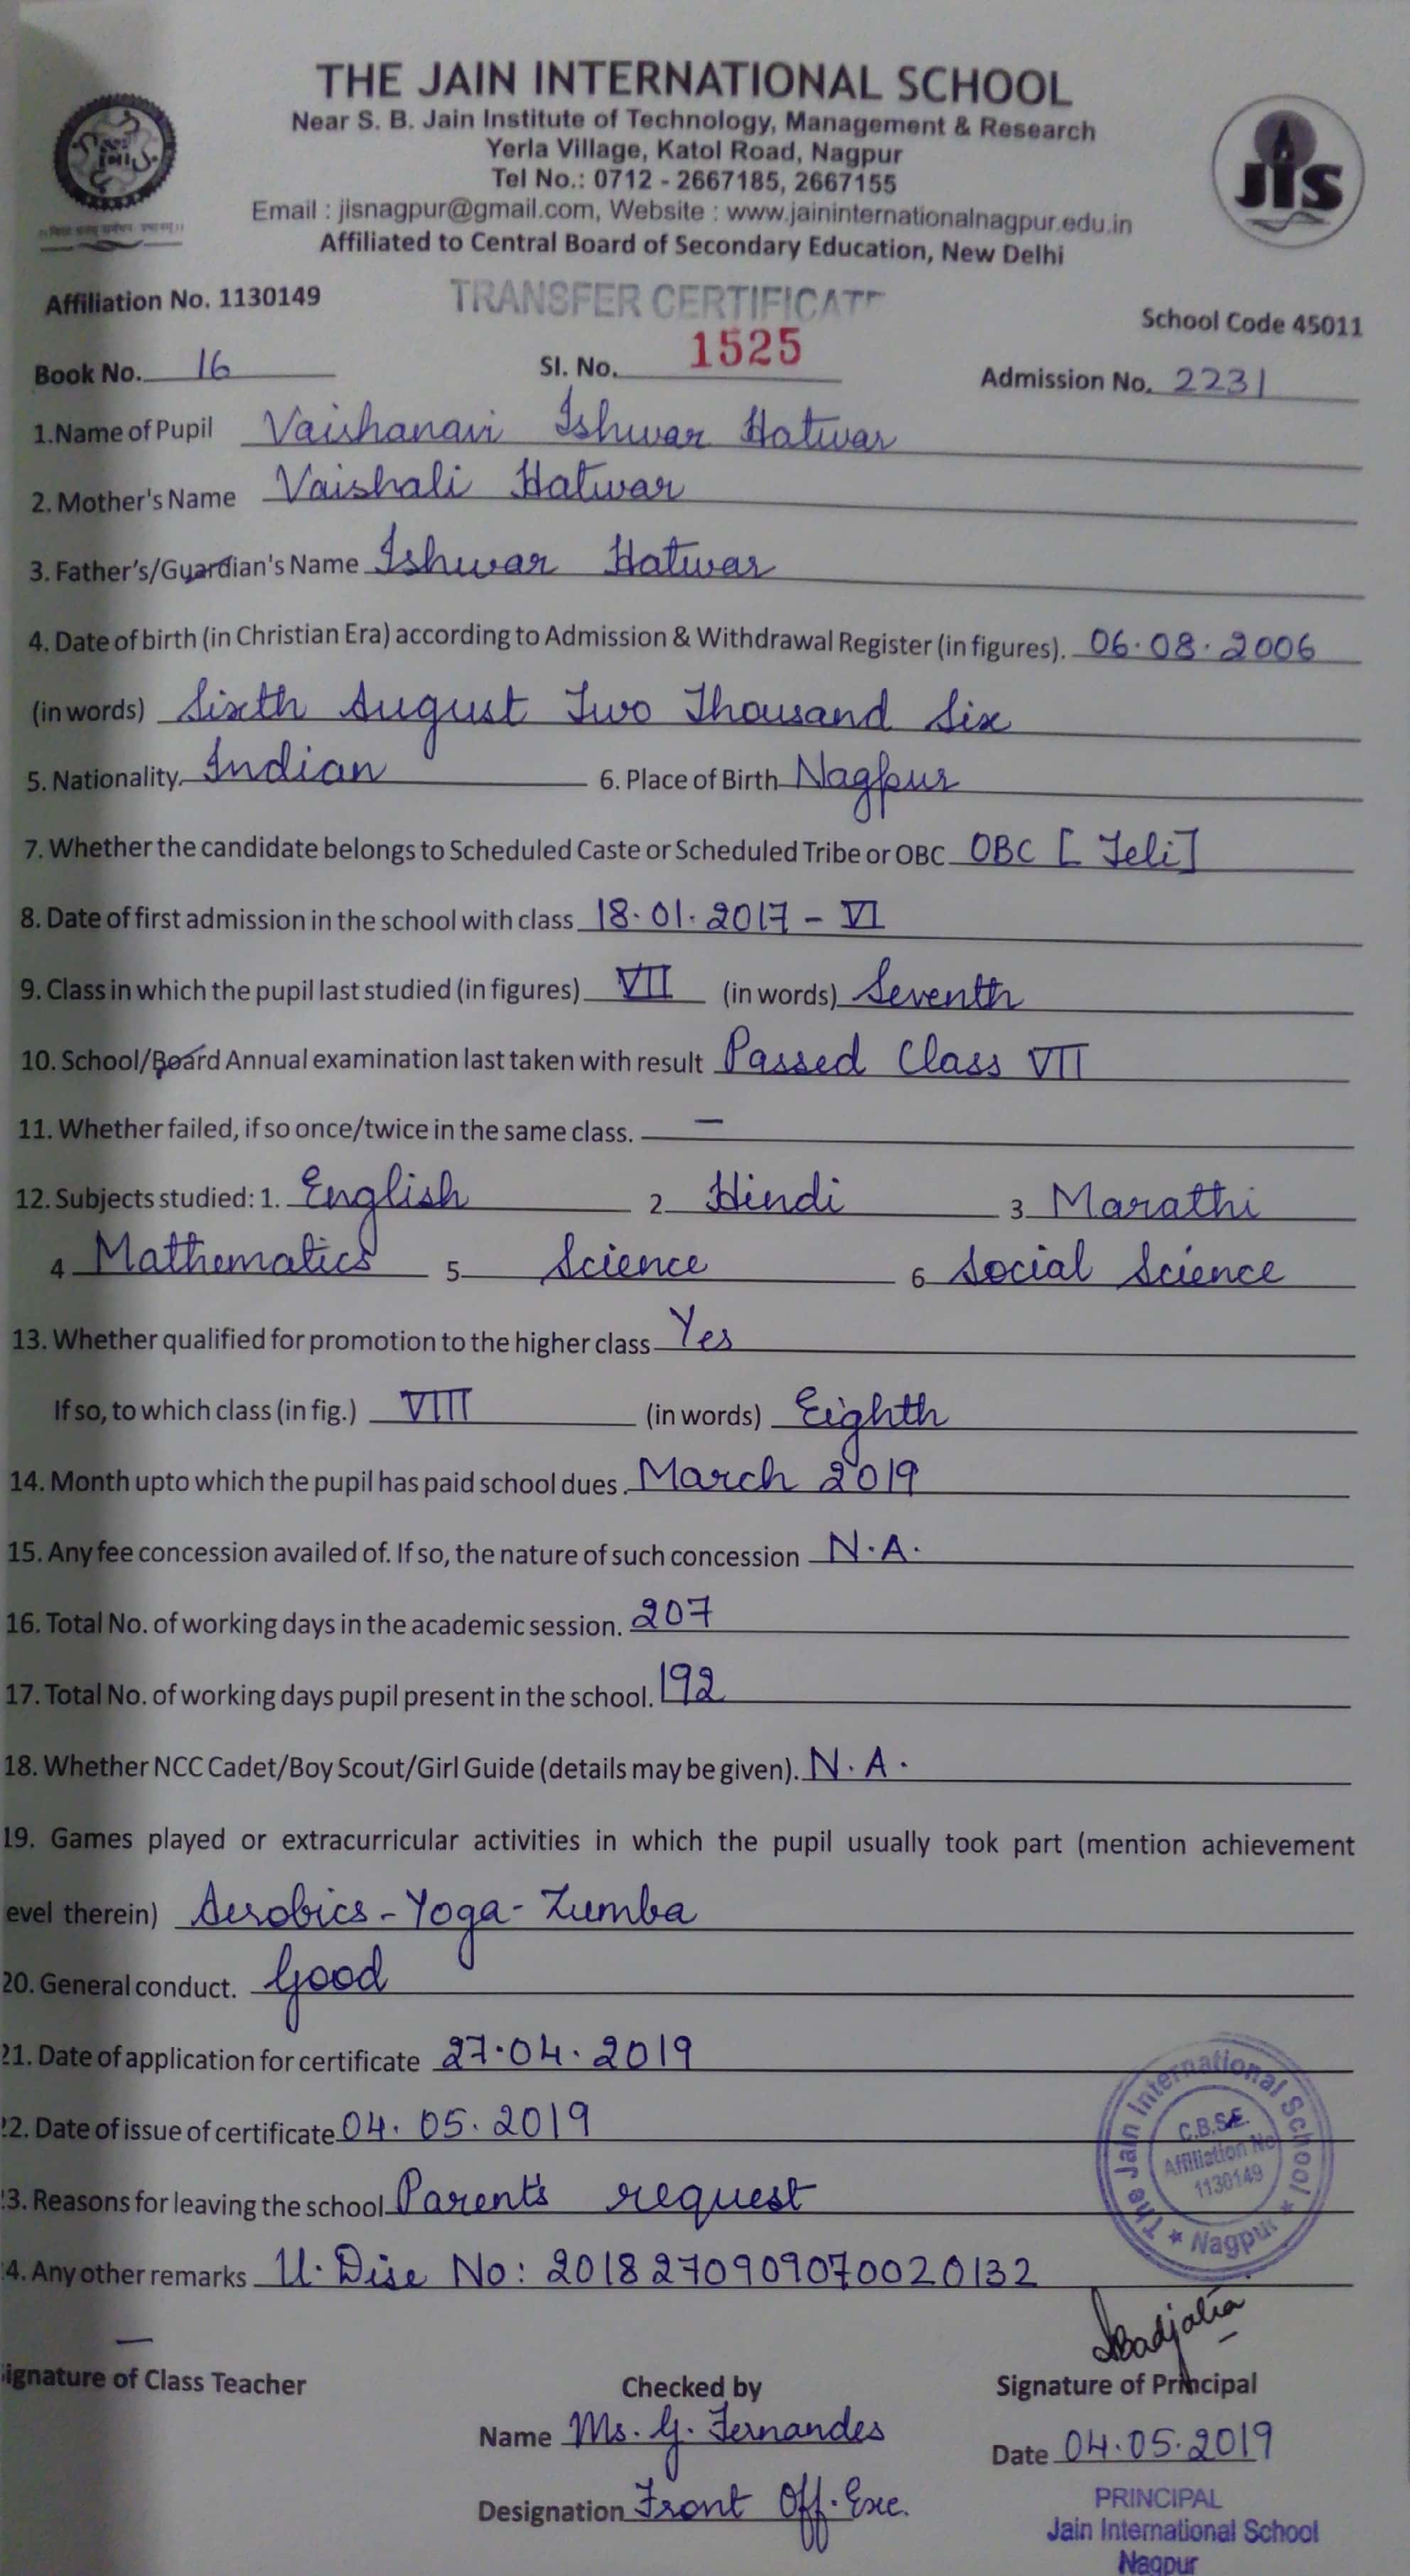 THE JAIN INTERNATIONAL SCHOOL
Near S. B. Jain Institute of Technology, Management & Research
Yerla Village, Katol Road, Nagpur
Tel No.: 0712 - 2667185, 2667155
Email : jisnagpur@gmail.com, Website : www.jaininternationalnagpur.edu.in
Affiliated to Central Board of Secondary Education, New Delhi
JIS
Affiliation No. 1130149 TRANSFER CERTIFICATE School Code 45011
Book No. 16 Sl. No. 1525 Admission No. 2231
1.Name of Pupil Vaishanavi Ishwar Hatwar
2. Mother's Name Vaishali Hatwar
3. Father's/Guardian's Name Ishwar Hatwar
4. Date of birth (in Christian Era) according to Admission & Withdrawal Register (in figures). 06.08.2006
(in words) Sixth August Two Thousand Six
5. Nationality. Indian 6. Place of Birth Nagpur
7. Whether the candidate belongs to Scheduled Caste or Scheduled Tribe or OBC OBC [ Teli]
8. Date of first admission in the school with class 18.01.2017 - VI
9. Class in which the pupil last studied (in figures) VII (in words) Seventh
10. School/Board Annual examination last taken with result Passed Class VII
11. Whether failed, if so once/twice in the same class. —
12. Subjects studied: 1. English 2 Hindi 3 Marathi
4 Mathematics 5 Science 6 Social Science
13. Whether qualified for promotion to the higher class Yes
If so, to which class (in fig.) VIII (in words) Eighth
14. Month upto which the pupil has paid school dues. March 2019
15. Any fee concession availed of. If so, the nature of such concession N.A.
16. Total No. of working days in the academic session. 207
17. Total No. of working days pupil present in the school. 192
18. Whether NCC Cadet/Boy Scout/Girl Guide (details may be given). N.A.
19. Games played or extracurricular activities in which the pupil usually took part (mention achievement
evel therein) Aerobics-Yoga-Zumba
20. General conduct. Good
21. Date of application for certificate 27.04.2019
22. Date of issue of certificate 04.05.2019
23. Reasons for leaving the school Parent's request
24. Any other remarks U.Dise No: 2018270909070020132
The Jain International School
C.B.S.E.
Affiliation No
1130149
★ Nagpur ★
—
Signature of Class Teacher Checked by Signature of Principal
Name Ms. G. Fernandes Date 04.05.2019
Designation Front Off. Exe.
PRINCIPAL
Jain International School
Nagpur